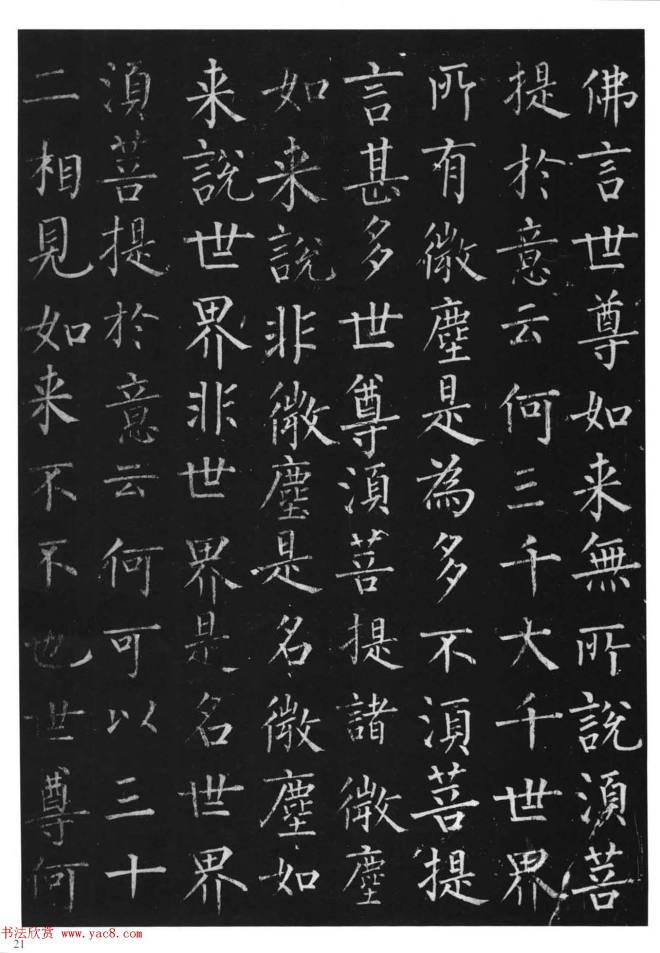 佛言世尊如来無所說湏菩
提於意云何三千大千世界
所有微塵是為多不湏菩提
言甚多世尊湏菩提諸微塵
如来說非微塵是名微塵如
来說世界非世界是名世界
湏菩提於意云何可以三十
二相見如来不不也世尊何
书法欣赏 www.yac8.com
21